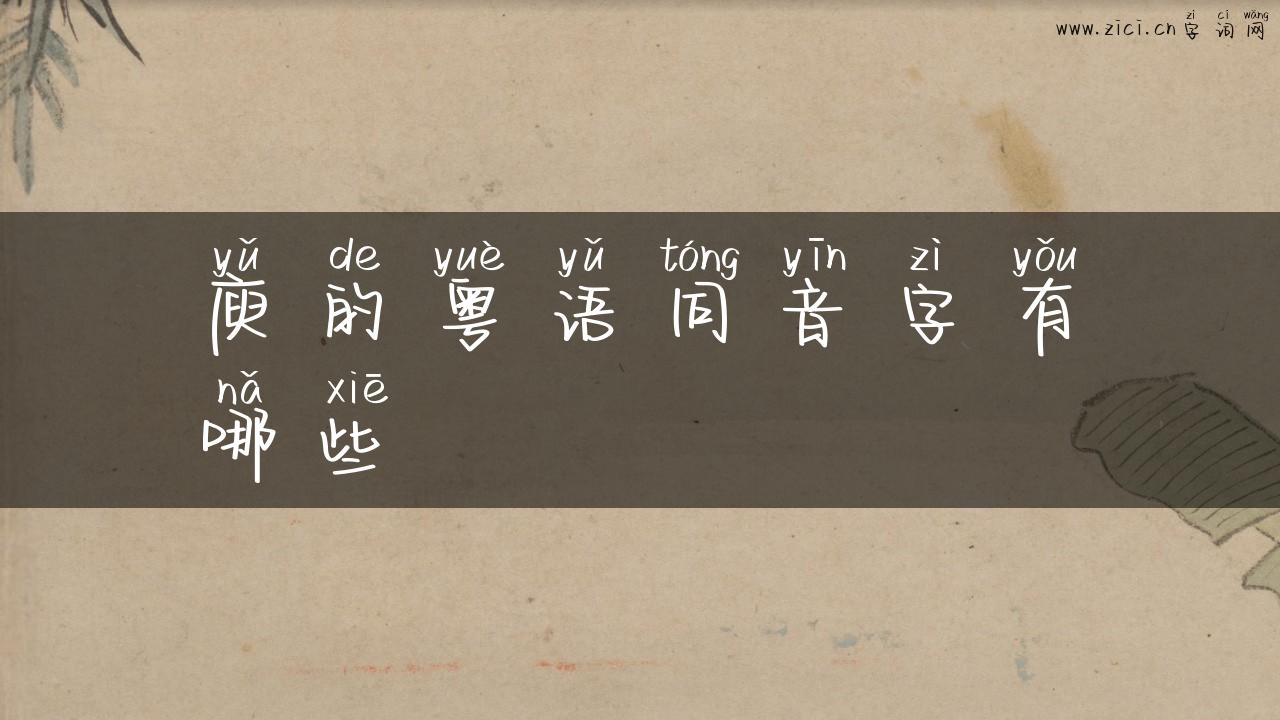 zì cí wǎng
www.zici.cn 字词网
yǔ de yuè yǔ tóng yīn zì yǒu
庾的粤语同音字有
nǎ xiē
哪些